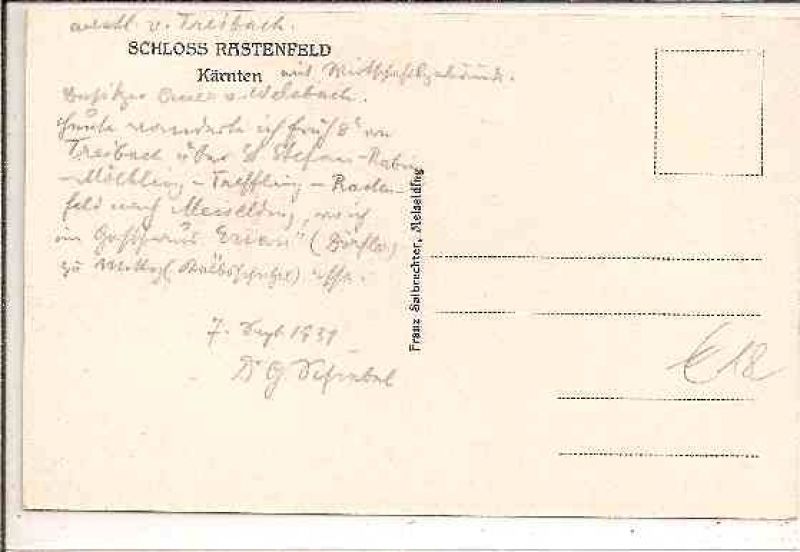 westl. v. Treibach.
SCHLOSS RASTENFELD
Kärnten mit Wirtschaftsgebäude.
Besitzer v. Welsbach.
Heute wanderte ich früh 8h von
Treibach über St Stefan - Rabing
- Möbling - Treffling - Rasten-
feld nach Meiselding, wo ich
im Gasthaus
zu Mittag (Kalbsschnitzel) esse.
7. Sept 1931
Dr G
Franz Salbrechter, Meiselding
€ 18